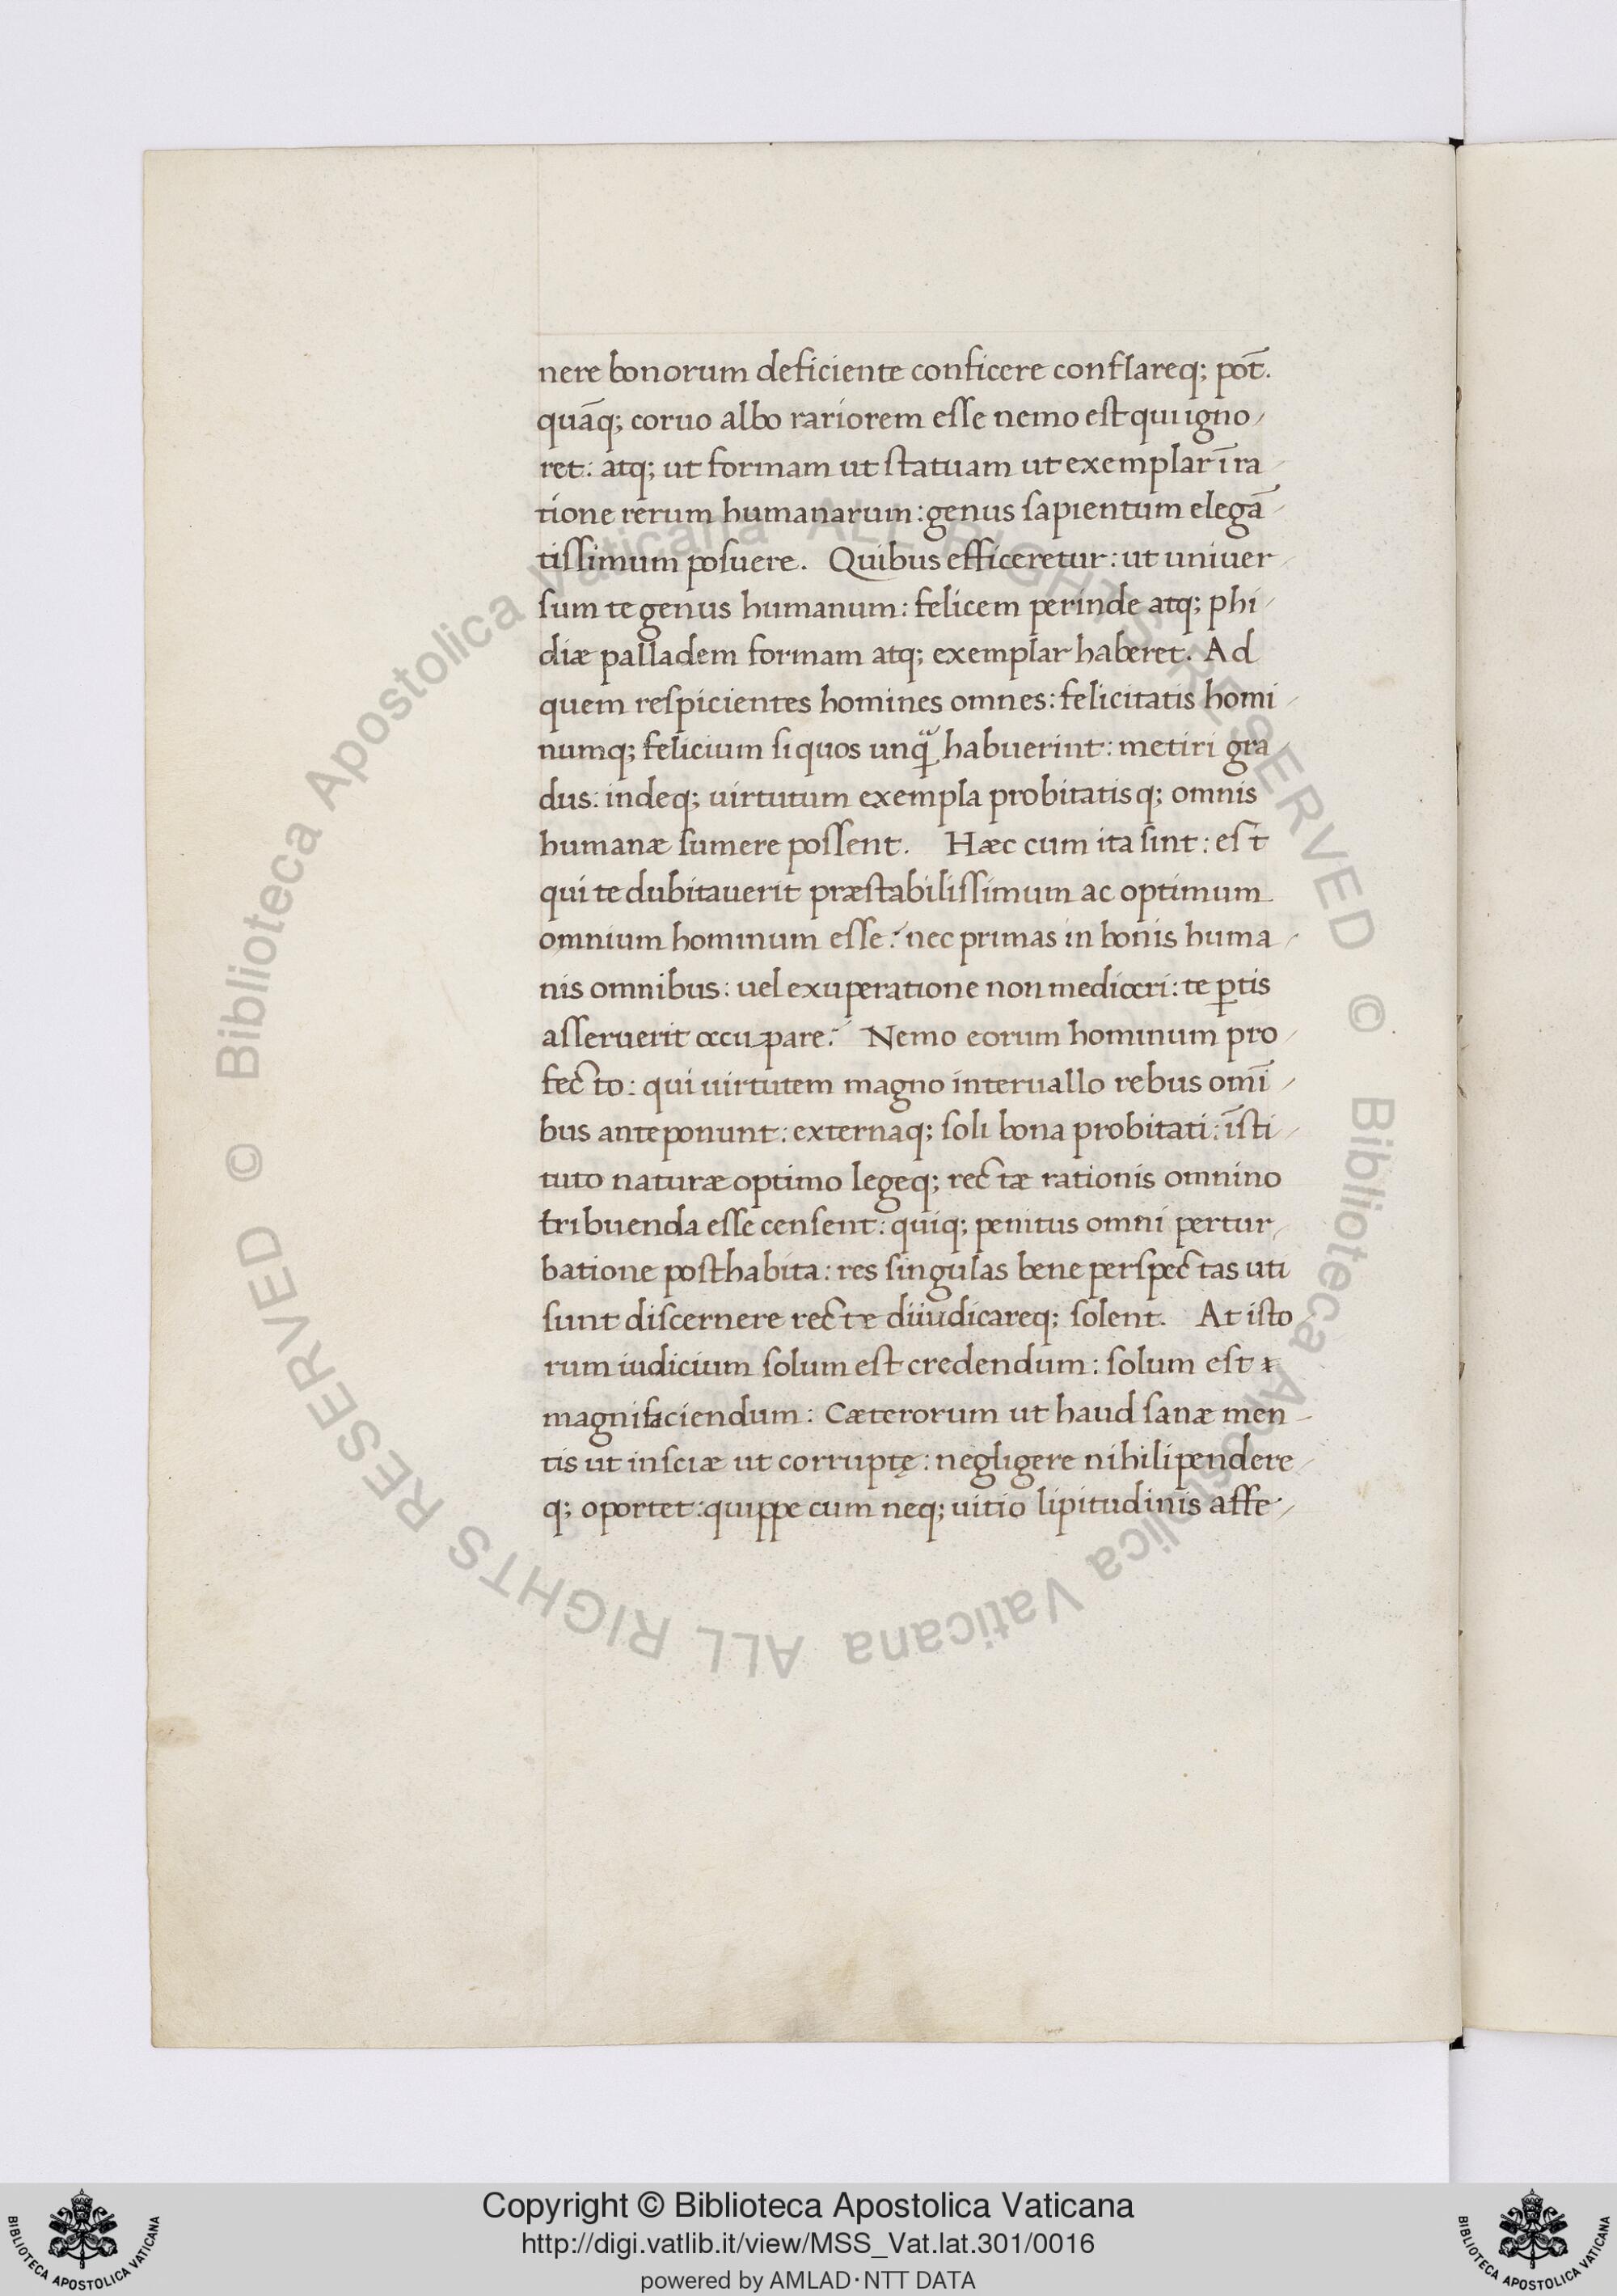 nere bonorum deficiente conficere conflareq; pot̄.
quāq; coruo albo rariorem esse nemo est qui igno
ret: atq; ut formam ut statuam ut exemplar ī ra
tione rerum humanarum: genus sapientum elegā
tissimum posuere. Quibus efficeretur: ut univer
sum te genus humanum: felicem perinde atq; phi
diæ palladem formam atq; exemplar haberet. Ad
quem respicientes homines omnes: felicitatis homi
numq; felicium siquos unq̄ habuerint: metiri gra
dus: indeq; uirtutum exempla probitatisq; omnis
humanæ sumere possent. Hæc cum ita sint: est
qui te dubitauerit præstabilissimum ac optimum
omnium hominum esse? nec primas in bonis huma
nis omnibus: uel exuperatione non mediocri: te ꝑtis
asseruerit occupare? Nemo eorum hominum pro
fecto: qui uirtutem magno interuallo rebus omī
bus anteponunt: externaq; soli bona probitati: īsti
tuto naturæ optimo legeq; rectæ rationis omnino
tribuenda esse censent: quiq; penitus omni pertur
batione posthabita: res singulas bene perspectas uti
sunt discernere recte diiudicareq; solent. At isto
rum iudicium solum est credendum: solum est
magnifaciendum: Cæterorum ut haud sanæ men
tis ut insciæ ut corruptę: negligere nihilipendere
q; oportet: quippe cum neq; uitio lipitudinis affe
© Biblioteca Apostolica Vaticana ALL RIGHTS RESERVED © Biblioteca Apostolica Vaticana ALL RIGHTS RESERVED
Copyright © Biblioteca Apostolica Vaticana
http://digi.vatlib.it/view/MSS_Vat.lat.301/0016
powered by AMLAD·NTT DATA
BIBLIOTECA APOSTOLICA VATICANA
BIBLIOTECA APOSTOLICA VATICANA